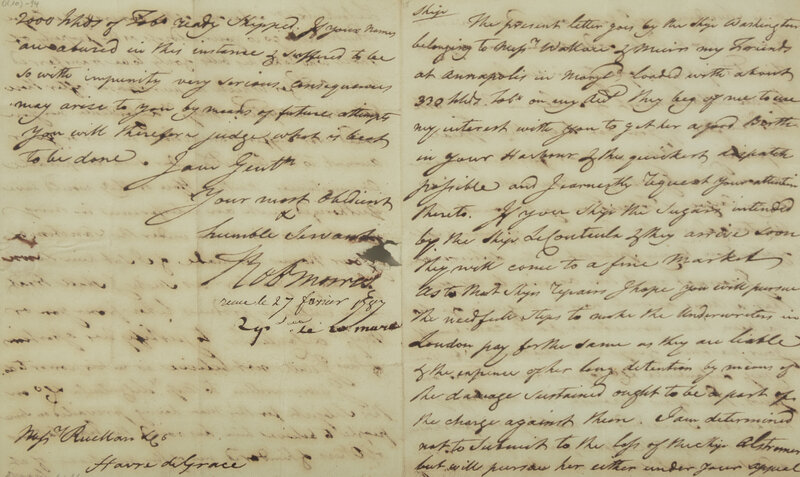 2000 hhds of Tobo ready Shipped. If your Names
are abused in this instance & suffered to be
so with impunity very serious consequences
may arise to you by means of future attempts
You will therefore judge what is best
to be done. I am Gentn
Your most Obedient
&
humble Servant
Robt Morris
recue le 27 fevrier 1787
le 2 mars
Messrs Ruellan & Co
Havre de Grace
Ship
The present letter goes by the Ship Washington
belonging to Messrs Wallace & Muirs my Friends
at Annapolis in Maryld Loaded with about
330 hhds Tobo on my They beg of me to use
my interest with you to get her a good Birth
in your Harbour & the quickest dispatch
possible and I earnestly request your attention
thereto. If your Ship the Sugars intended
by the Ship LeCouteulx & they arrive soon
they will come to a fine Market
As to that Ships repairs I hope you will pursue
the needfull steps to make the Underwriters in
London pay for the same as they are liable
& the expence of her long detention by means of
the damage sustained ought to be a part of
the charge against them. I am determined
not to submit to the loss of the Ship Alstromer
but will pursue her either under your appeal